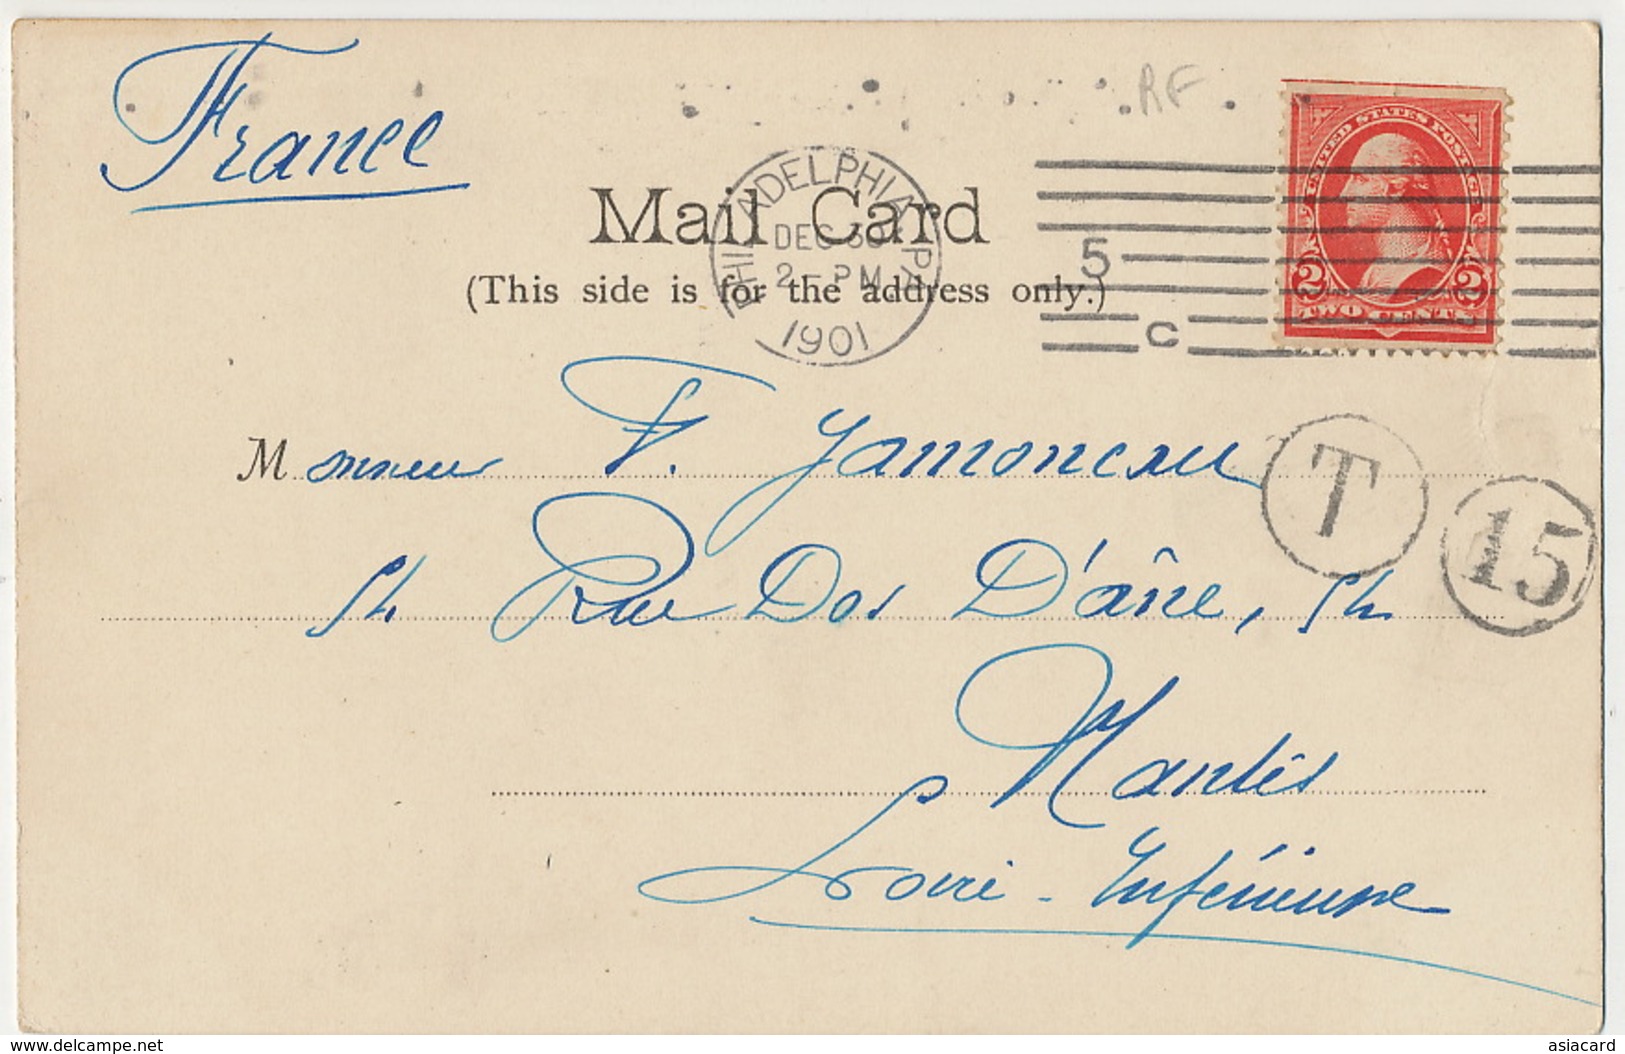 France
RF
UNITED STATES POSTAGE
2 2
TWO CENTS
PHILADELPHIA, PA.
DEC 30
2 - PM
1901
5
C
Mail Card
(This side is for the address only.)
Monsieur F. Jamoneau
T
15
54 Rue Dos D'âne, 54
Nantes
Loire-Inférieure
www.delcampe.net
asiacard